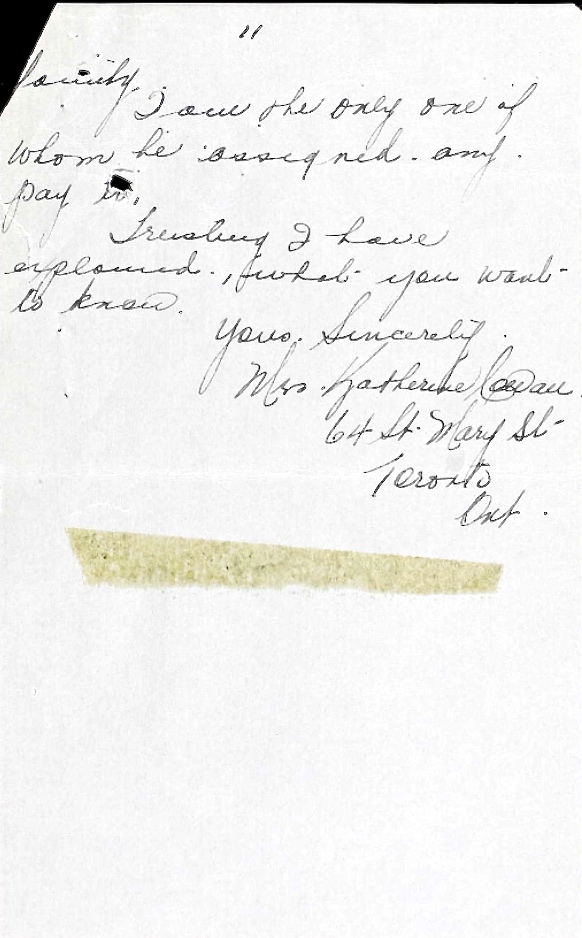 "
family.
I am the only one of
whom he assigned. any.
pay to.
Trusting I have
explained., what you want
to know.
Yours. Sincerely.
Mrs. Katherine Cowan.
64 St. Mary St
Toronto
Ont.